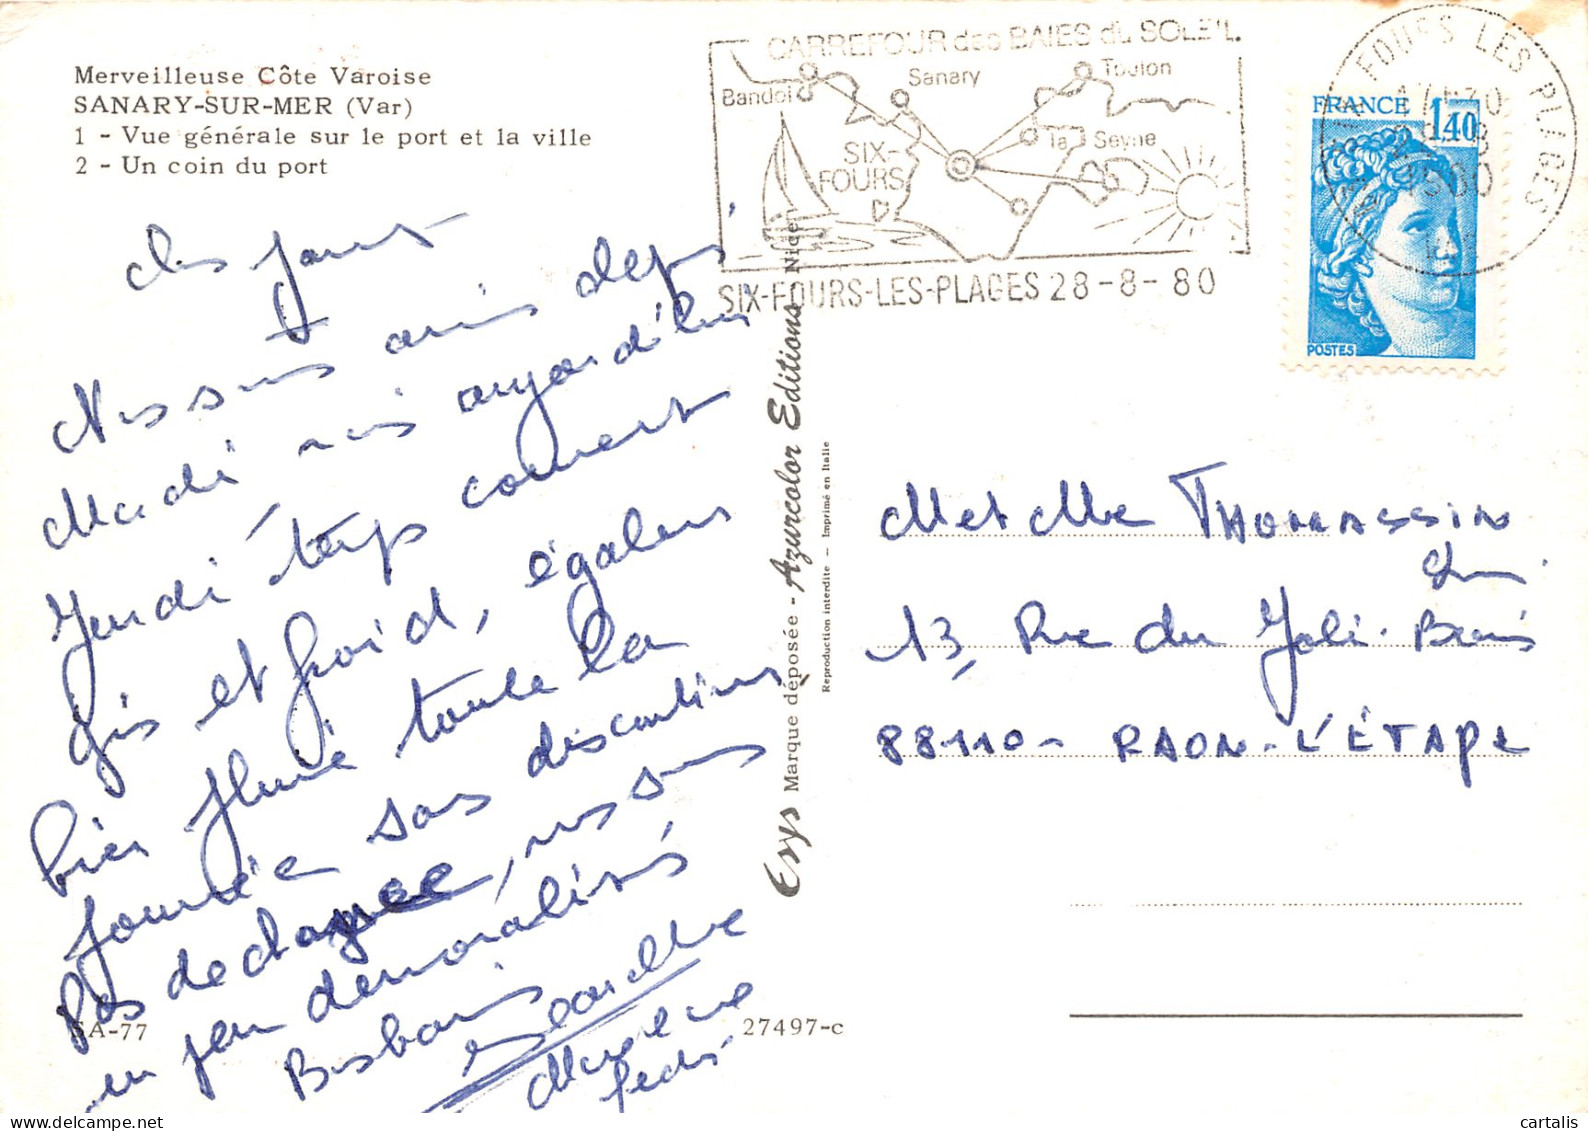 Merveilleuse Côte Varoise
SANARY-SUR-MER (Var)
1 - Vue générale sur le port et la ville
2 - Un coin du port
CARREFOUR des BAIES du SOLEIL
Bandol
Sanary
Toulon
la Seyne
SIX-
FOURS
SIX-FOURS-LES-PLAGES 28-8-80
FOURS LES PLAGES
FRANCE
1,40
POSTES
jours
Nous sommes depuis
Mardi mais aujourd'hui
Jeudi temps couvert
Gris et froid, également
bien pluie toute la
journée sans discontinuer
Pas de chance, nous sommes
un peu démoralisés
Bisbaris
M et Mme THOMASSIN
13, Rue du Joli-Bois
88110 - RAON-L'ÉTAPE
Erys Marque déposée - Azurcolor Editions Nice
Reproduction interdite - Imprimé en Italie
SA-77
27497-c
cartalis